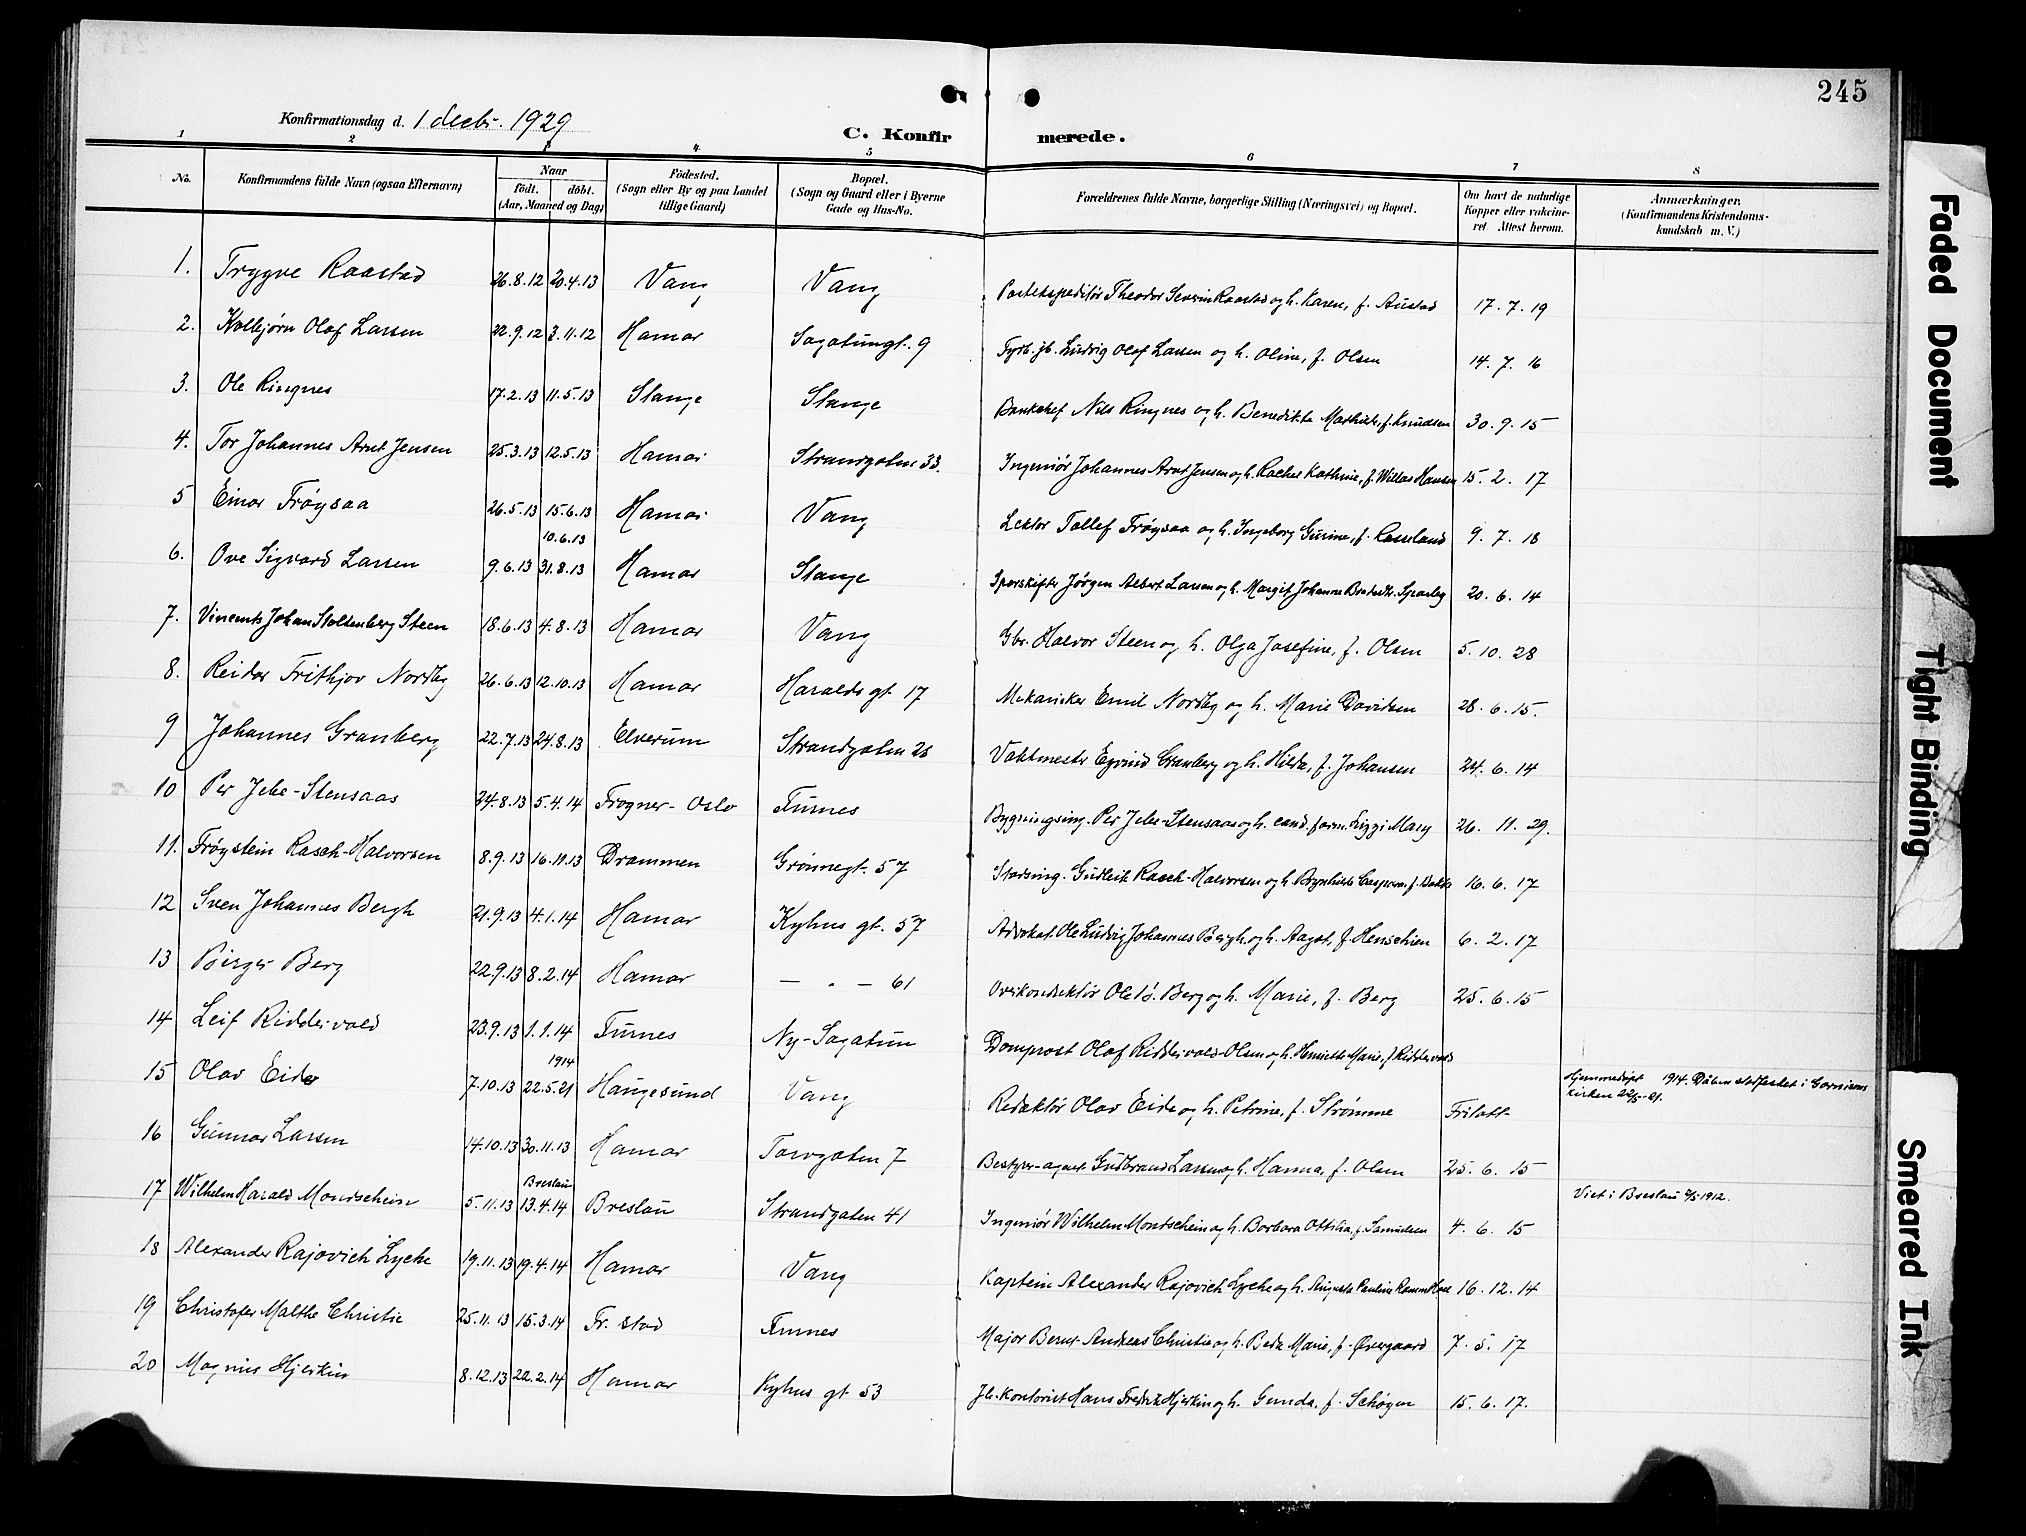 245
Konfirmationsdag d. 1 decbr. 1929
C. Konfirmerede.
1 2 3 4 5 6 7 8
No. Konfirmandens fulde Navn (ogsaa Efternavn) Naar födt. döbt. (Aar, Maaned og Dag) Födested. (Sogn eller By og paa Landet tillige Gaard) Bopæl. (Sogn og Gaard eller i Byerne Gade og Hus-No. Forældrenes fulde Navne, borgerlige Stilling (Næringsvei) og Bopæl. Om havt de naturlige Kopper eller vakcineret. Attest herom. Anmærkninger. (Konfirmandens Kristendomskundskab m. V.)
1. Trygve Raastad 26.8.12 20.4.13 Vang Vang Postekspeditör Theodor Severin Raastad og h. Karen, f. Austad 17.7.19
2. Kolbjørn Olaf Larsen 22.9.12 3.11.12 Hamar Sagatungt. 9 Fyrb. jb. Ludvig Olaf Larsen og h. Oline, f. Olsen 14.7.16
3. Ole Ringnes 17.2.13 11.5.13 Stange Stange Banksjef Nils Ringnes og h. Benedikte Mathilde, f. Knudsen 30.9.15
4. Tor Johannes Arnt Jensen 25.3.13 12.5.13 Hamar Strandgaten 33. Ingeniör Johannes Arnt Jensen og h. Rachel Kathrine, f. Willas Hansen 15.2.17
5 Einar Frøysaa 26.5.13 15.6.13 Hamar Vang Lektor Tallef Frøysaa og h. Ingeborg Gurine, f. Rosseland 9.7.18
10.6.13
6. Ove Sigvard Larsen 9.6.13 31.8.13 Hamar Stange Sporskifter Jørgen Albert Larsen og h. Margit Johanne 20.6.14
7. Vincents Johan Stoltenberg Steen 18.6.13 4.8.13 Hamar Vang Gbr. Halvor Steen og h. Olga Josefine, f. Olsen 5.10.28
8. Reidar Frithjov Nordby 26.6.13 12.10.13 Hamar Haralds gt 17 Mekaniker Emil Nordby og h. Marie Davidsen 28.6.15.
9 Johannes Granberg 22.7.13 24.8.13 Elverum Strandgaten 26 Vaktmester Eyvind Granberg og h. Hilda, f. Johansen 24.6.14
10 Per Jebe-Stensaas 24.8.13 5.4.14 Frogner-Oslo Furnes Bygningsing. Per Jebe-Stensaas og h. cand. farm. Mary 26.11.29.
11. Frøystein Rasch-Halvorsen 8.9.13 16.11.13 Drammen Grønnegt. 57 Stadsing. Gudleik Rasch-Halvorsen og h. Brynhild 16.6.17
12 Sven Johannes Bergh 21.9.13 4.1.14 Hamar Kyhns gt. 57 Advokat Ole Ludvig Johannes Bergh og h. Aagot, f. Henschien 6.2.17
13 Birger Berg 22.9.13 8.2.14 Hamar — " — 61 Overkonduktör Berg og h. Marie, f. Berg 25.6.15
14 Leif Riddervold 23.9.13 1.1.14 Furnes Ny-Sagatun Domprost Olaf Riddervold-Olsen og h. Henriette Marie, f. Riddervold
1914
15 Olav Eide 7.10.13 22.5.21 Haugesund Vang Redaktör Olav Eide og h. Petrine, f. Strømme Fritatt Hjemmedøpt 1914. Dåben stadfestet i Garnisons kirken 22/5-21.
16 Gunnar Larsen 14.10.13 30.11.13 Hamar Torvgaten 7 Bestyrer-agent Gudbrand Larsen og h. Hanna, f. Olsen 25.6.15
Breslau
17 Wilhelm Harald Mondschein 5.11.13 13.4.14 Breslau Strandgaten 41 Ingeniör Wilhelm Mondschein og h. Borbara Ottilia, f. Samuelsen 4.6.15 Viet i Breslau 1912.
18 Alexander Rajovich Lyche 19.11.13 19.4.14 Hamar Vang Kaptein Alexander Rajovich Lyche og h. Augusta Pauline 16.12.14
19 Christofer Malthe Christie 25.11.13 15.3.14 Fr.stad Furnes Major Bernt Andreas Christie og h. Marie, f. Øvergaard 7.5.17
20 Magnus Hjerkin 8.12.13 22.2.14 Hamar Kyhns gt 53 Jb. kontorist Hans Fredrik Hjerkin og h. Gunda, f. Schøgen 15.6.17.
Faded Document
Tight Binding
Smeared Ink